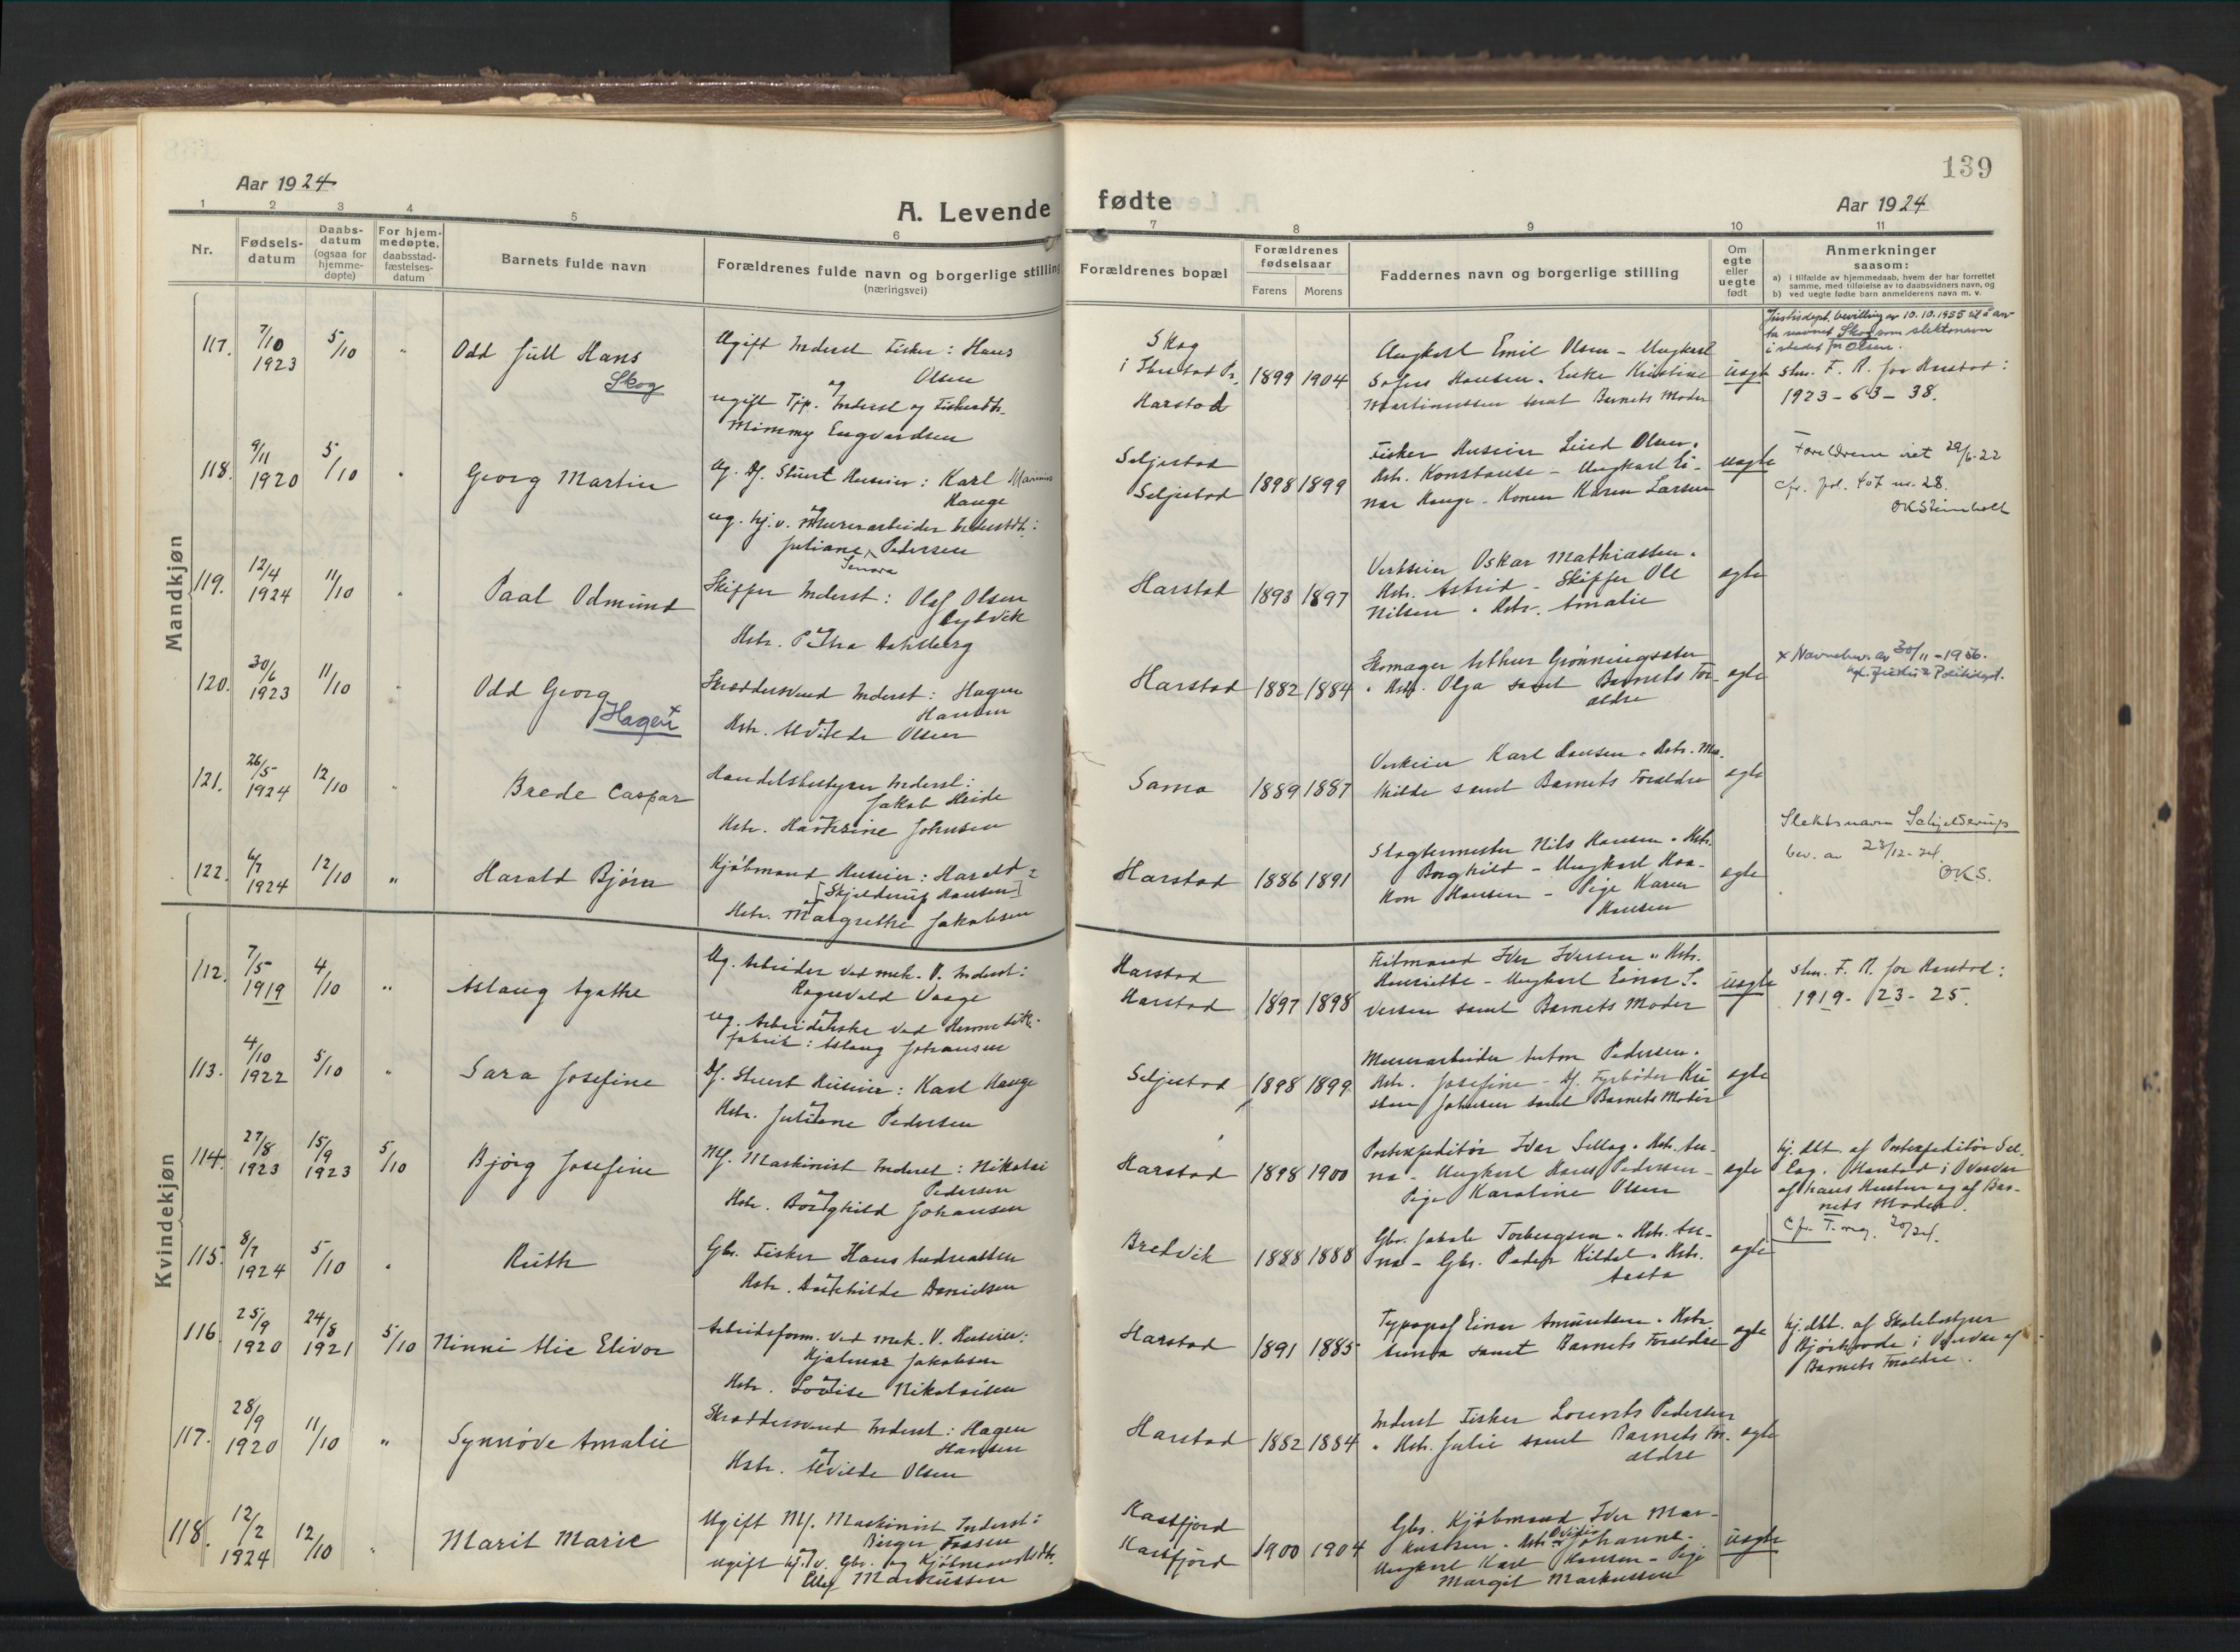 139
Aar 1924
A. Levende
fødte
Aar 1924
1 2 3 4 5 6 7 8 9 10 11
Nr.
Fødsels-
datum
Daabs-
datum
(ogsaa for
hjemme-
døpte)
For hjem-
medøpte,
daabsstad-
fæstelses-
datum
Barnets fulde navn
Forældrenes fulde navn og borgerlige stilling
(næringsvei)
Forældrenes bopæl
Forældrenes
fødselsaar
Farens Morens
Faddernes navn og borgerlige stilling
Om
egte
eller
uegte
født
Anmerkninger
saasom:
a) i tilfælde av hjemmedaab, hvem der har forrettet
samme, med tilføielse av to daabsvidners navn, og
b) ved uegte fødte barn anmelderens navn m. v.
Mandkjøn
117. 7/10 1923 5/10 "
Odd Jull Hans
Skog
Ugift Inderst Fisker: Hans
Olsen
og
ugift Tjp. Inderst og Fiskerdtr.
Mimmy Engvardsen
Skog
i Harstad
1899 1904
Ungkarl Emil Olsen - Ungkarl
Hansen. Enke Kristine
Martinussen samt Barnets Moder
uegte
Justisdept. bevilling av 10.10.1955 til å an-
ta navnet Skog som slektsnavn
i stedet for Olsen.
F. R. for Harstad:
1923 - 63 - 38.
118. 9/11 1920 5/10 "
Georg Martin
Ug. Df. Stuert Huseier: Karl Marinius
Hauge
og
ug. hj. v. Murerarbeider Inderstdt.:
Juliane Pedersen
Senora
Seljestad
Seljestad
1898 1899
Fisker Huseier Olsen.
Hstr. Konstanse - Ungkarl Ei-
nar Hauge. Konen Karen Larsen
uegte
Foreldrene viet 29/6-22
cfr. fol. 407 nr. 28.
OKSteinholt
119. 12/4 1924 11/10 "
Paal Odmund
Skipper Inderst: Olaf Olsen
og
Hstr. Petra Dahlberg
Harstad
1893 1897
Verkseier Oskar Mathiassen.
Hstr. Astrid - Skipper Ole
Nilsen " Hstr. Amalie
egte
120. 30/6 1923 11/10 "
Odd Georg
Hagen x
Skræddersvend Inderst: Hagen
Hansen
og
Hstr. Alvilde Olsen
Harstad
1882 1884
Skomager Arthur Grønningsæter
" Hstr. Olga samt Barnets For-
ældre
egte
x Navnebev. av 30/11-1956.
Justis & Politidept.
121. 26/5 1924 12/10 "
Brede Caspar
Handelsbestyrer Inderst:
Jakob Heide
og
Hstr. Johnsen
Sama
1889 1887
Verkeier Karl Hansen " Hstr. Ma-
thilde samt Barnets Forældre
egte
122. 6/7 1924 12/10 "
Harald Bjørn
Kjøbmand Huseier: Harald
[Skjelderup Hansen]
og
Hstr. Margrethe Jakobsen
Harstad
1886 1891
Slagtermester Nils Hansen " Hstr.
Borghild - Ungkarl Haa-
kon Hansen - Pige Karen
Hansen
egte
Slektsnavn Schjelderup
bev. av 23/12-24.
OKS.
Kvindekjøn
112. 7/5 1919 4/10 "
Aslaug Agathe
Ug. Arbeider ved mek. V. Inderst:
Ragnvald Vaage
og
ug. Arbeiderske ved Hermetik-
fabrik: Aslaug Johansen
Harstad
Harstad
1897 1898
Feilmand Iver Iversen " Hstr.
Henriette - Ungkarl Einar I-
versen samt Barnets Moder
uegte
F. R. for Harstad:
1919 - 23 - 25.
113. 4/10 1922 5/10 "
Sara Josefine
Df. Stuert Huseier: Karl Hauge
og
Hstr. Juliane Pedersen
Seljestad
1898 1899
Murerarbeider Anton Pedersen.
Hstr. Josefine - Df. Fyrbøder Kri-
stian Johnsen samt Barnets Moder
egte
114. 27/8 1923 15/9 1923 5/10
Bjørg Josefine
Mf. Maskinist Inderst: Nikolai
Pedersen
og
Hstr. Borghild Johansen
Harstad
1898 1900
Postexpeditør Ivar Sellæg " Hstr. An-
na - Ungkarl Hans Pedersen -
Pige Karoline Olsen
egte
hj. dbt. af Postexpeditør Sel-
læg. Harstad i Overvær
af hans Hustru og af Bar-
nets Moder.
115. 8/7 1924 5/10 "
Ruth
Gbr. Fisker Hans Andreassen
og
Hstr. Danielsen
Bredvik
1888 1888
Gbr. Jakob Torbergsen " Hstr. An-
na - Gbr. Peder Kildal " Hstr.
Aasta
egte
Cfr. T. 20/24.
116. 25/9 1920 24/8 1921 5/10
Ninni Alie Elivor
Arbeidsform. ved mek. V. Huseier:
Hjalmar Jakobsen
og
Hstr. Lovise Nikolaisen
Harstad
1891 1885
Typograf Einar Amundsen " Hstr.
Anna samt Barnets Forældre
egte
hj. dbt. af Skolebestyrer
i Overvær af
Barnets Forældre.
117. 28/9 1920 11/10 "
Synnøve Amalie
Skræddersvend Inderst: Hagen
Hansen
og
Hstr. Alvilde Olsen
Harstad
1882 1884
Inderst Fisker Lorents Pedersen
" Hstr. Julie samt Barnets For-
ældre
egte
118. 12/2 1924 12/10 "
Marit Marie
Ugift Mf. Maskinist Inderst:
Birger Fossen
og
ugift hj. v. Gbr. og Kjøbmandsdtr.
Elley Markussen
Kasfjord
Kasfjord
1900 1904
Gbr. Kjøbmand Iver Mar-
kussen. Hstr. Johanna.
Ungkarl Karl Hansen - Pige
Margit Markussen
uegte